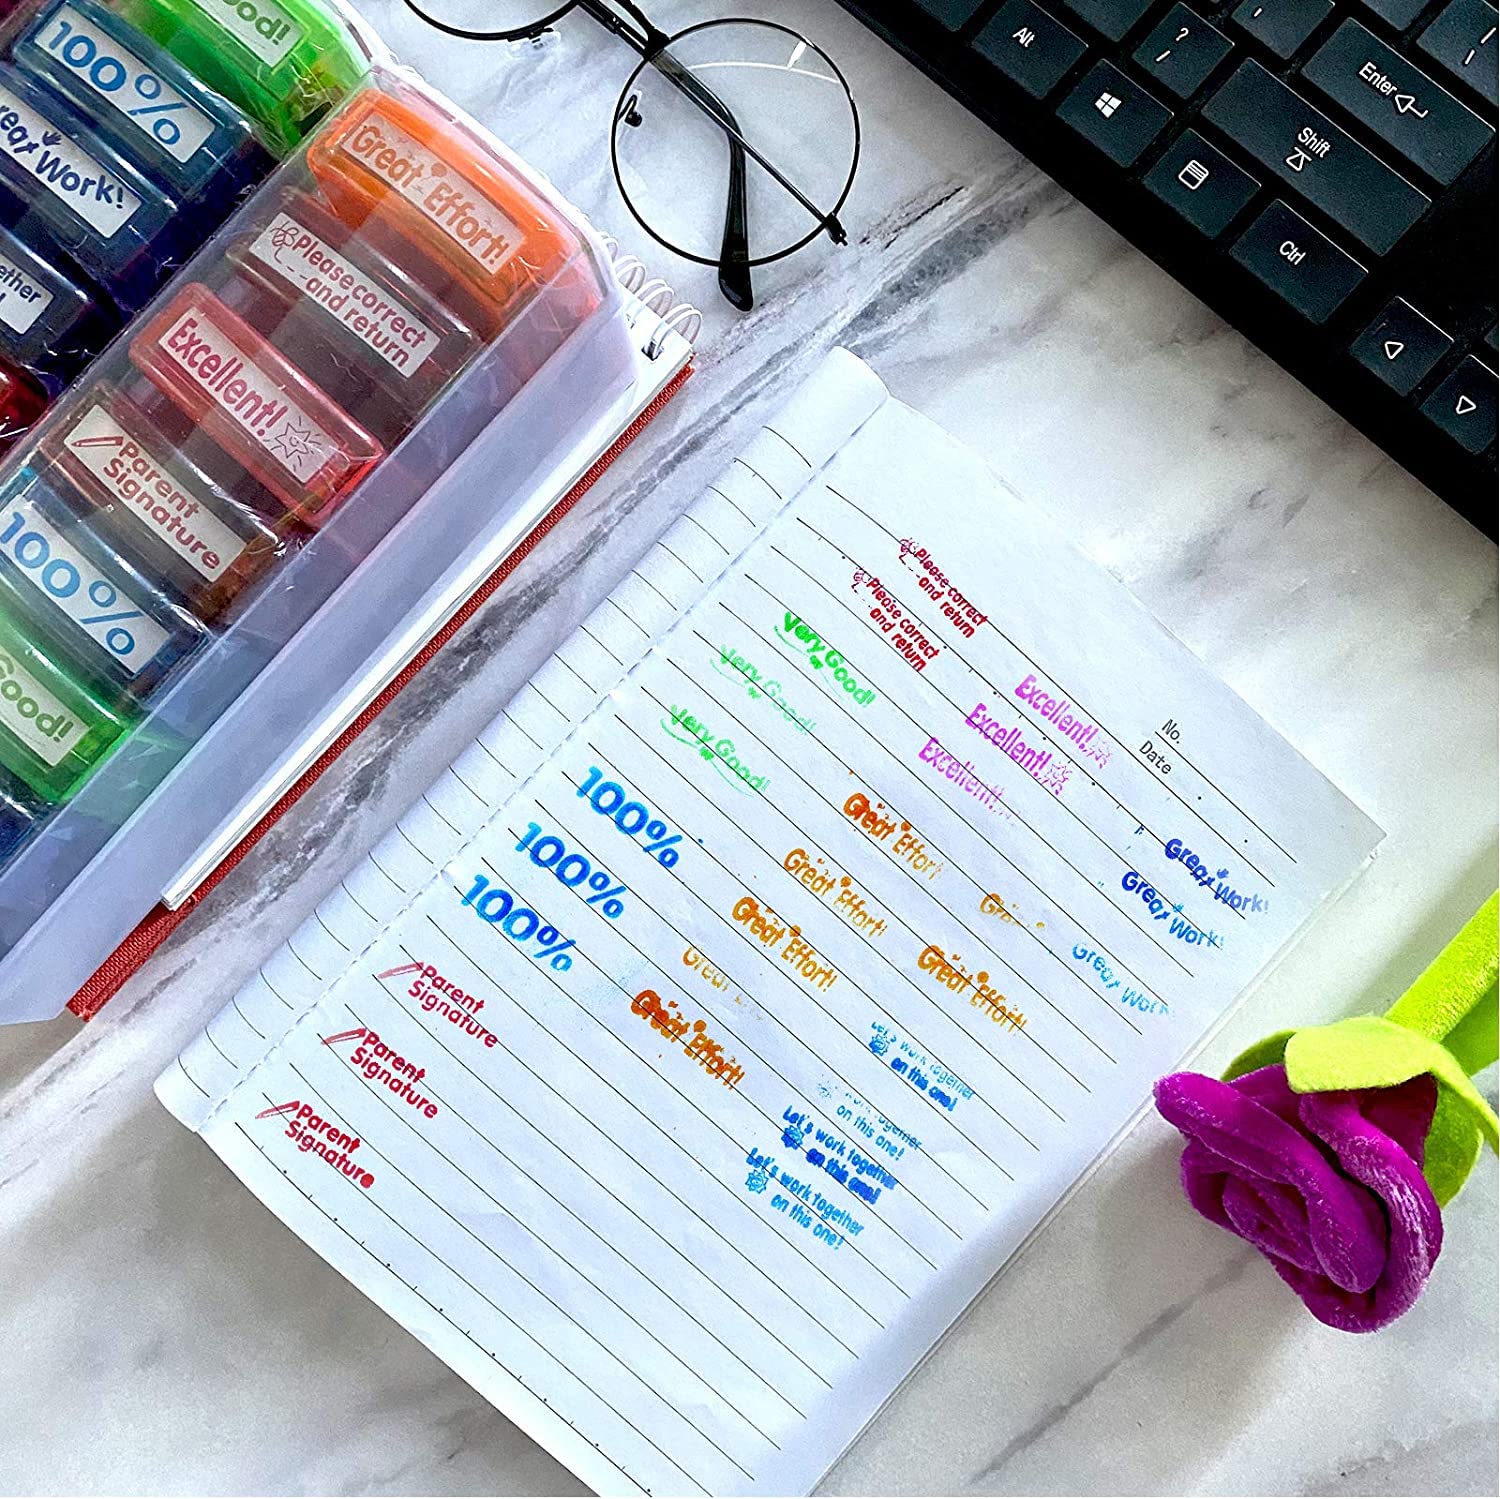 Good!
100%
Great Work!
Great Effort!
Please correct
and return
Excellent!
Parent
Signature
100%
Good!
Alt
?
/
Enter
Shift
Ctrl
No.
Date
Please correct
and return
Please correct
and return
Very Good!
Very Good!
Very Good!
Excellent!
Excellent!
Excellent!
100%
100%
100%
Great Effort!
Great Effort!
Great Effort!
Great
Great Effort!
Great Effort!
Great Work!
Great Work!
Great Work
Let's work together
on this one!
work together
on this one!
Let's work together
on this one!
Let's work together
on this one!
Parent
Signature
Parent
Signature
Parent
Signature